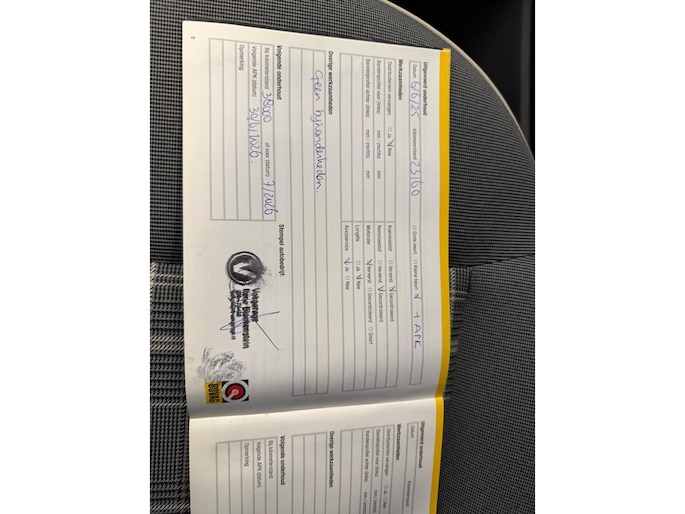 Uitgevoerd onderhoud
Datum 6/6/25 Kilometerstand 23160 □ Grote beurt □ Kleine beurt V + APK
Werkzaamheden
Distributieriem vervangen □ Ja V Nee
Bandenprofiel voor (links) mm / (rechts) mm
Bandenprofiel achter (links) mm / (rechts) mm
Koelvloeistof □ Ververst V Gecontroleerd
Remvloeistof □ Ververst V Gecontroleerd
Motorolie V Ververst □ Gecontroleerd □ Soort
Longlife □ Ja V Nee
Aircoservice V Ja □ Nee
Overige werkzaamheden
Geen bijzonderheden.
Volgende onderhoud
Bij kilometerstand 38000 of voor (datum) 7/2026
Volgende APK (datum) 30/01/2026.
Opmerking
Stempel autobedrijf:
Vakgarage
Elmar Blankenstein
BOVAG
8
Uitgevoerd onderhoud
Datum Kilometerstand
Werkzaamheden
Distributieriem vervangen □ Ja □ Nee
Bandenprofiel voor (links) mm / (rechts)
Bandenprofiel achter (links) mm / (rechts)
Overige werkzaamheden
Volgende onderhoud
Bij kilometerstand
Volgende APK (datum)
Opmerking